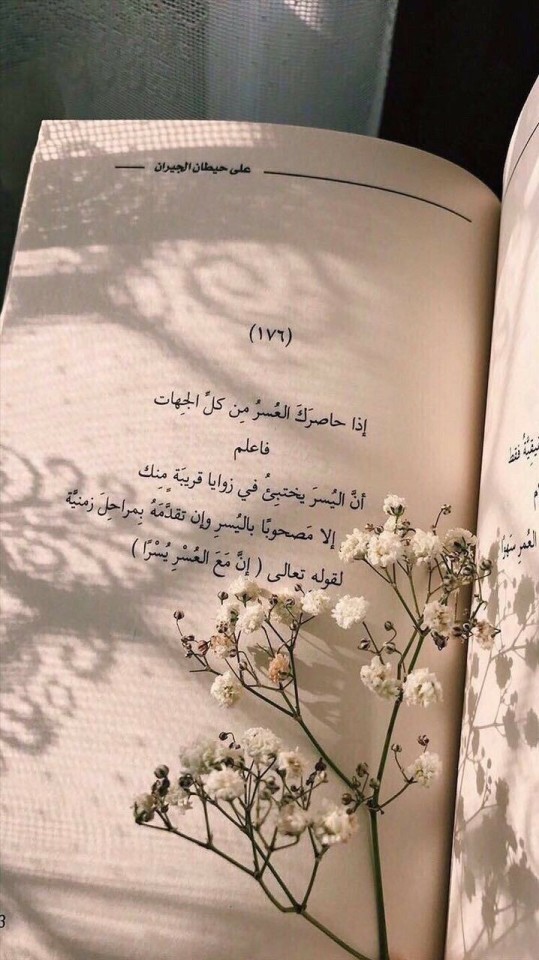 على حيطان الجيران
(١٧٦)
إذا حاصرَكَ العُسرُ مِن كلِّ الجِهات
فاعلم
أنَّ اليُسرَ يختبِئُ في زوايا قريبَة مِنك
إلا مَصحوبًا باليُسرِ وإن تقدَّمَهُ بِمراحِلَ زمنيَّة
لقوله تعالى ( إنَّ مَعَ العُسْرِ يُسْرًا )
3
فقط
العُمرِ سَهوًا